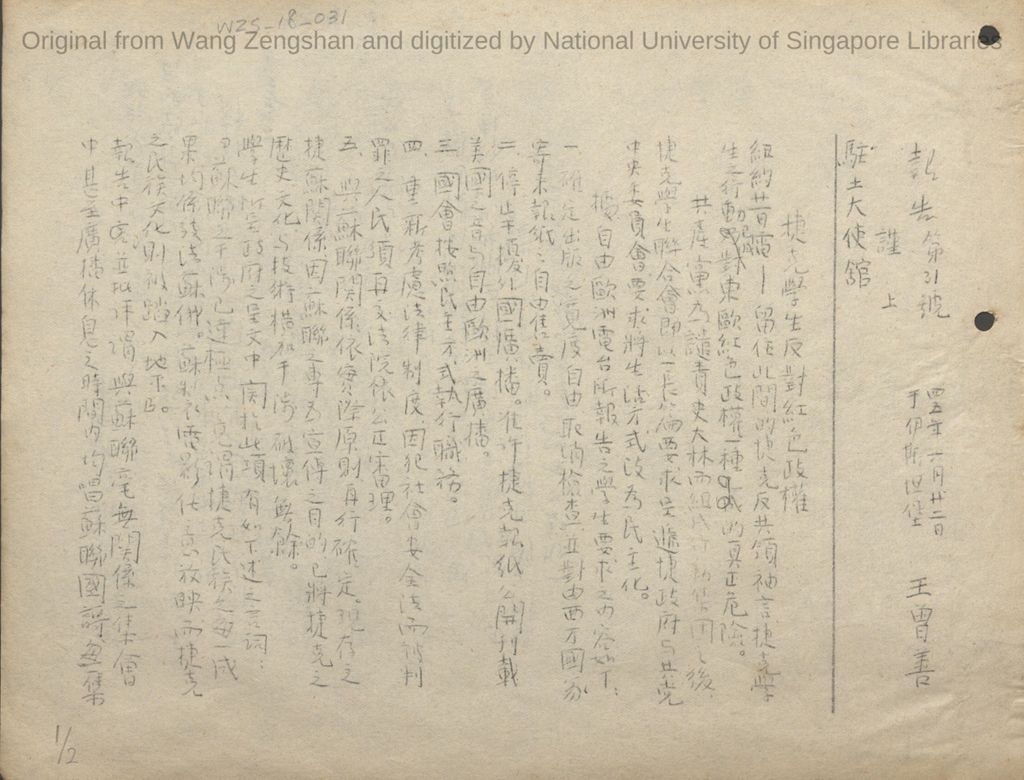 WZS_18_031
Original from Wang Zengshan and digitized by National University of Singapore Libraries
報告第31號 四五年六月廿二日
于伊斯坦堡 王曾善
謹上
駐土大使館
捷克學生反對紅色政權
紐約廿一日電—留住此間的捷克反共領袖言捷克學
生之行動對東歐紅色政權一種的真正危險。
共產黨為譴責史大林而組成之後,
捷克學生聯合會即以一長篇要求呈遞捷政府与共黨
中央委員會要求將生活方式改為民主化。
據自由歐洲電台所報告之學生要求之內容如下:
一、確定出版之寬度自由取消檢查並對由西方國家
寄來報紙之自由售賣。
二、停止干擾外國廣播。准許捷克報紙公開刊載
美國之音与自由歐洲之廣播。
三、國會按照民主方式執行職務。
四、重新考慮法律制度,因犯社會安全法而被判
罪之人民須再交法院依公正審理。
五、與蘇聯関係依實際原則再行確定。現存之
捷蘇関係,因蘇聯之專為宣傳之目的已將捷克之
歷史文化与技術橫加干涉破壞無餘。
學生所呈政府之呈文中関於此項有如下述之言詞:
「蘇聯之干涉已達極點,所謂捷克民族之每一成
果均係發法蘇佛。蘇製電影任意放映而捷克
之民族文化則被踏入地下」。
報告中寫並批評謂與蘇聯毫無関係之集會
中甚至廣播休息之時間內均唱蘇聯國謌,每集
1/2